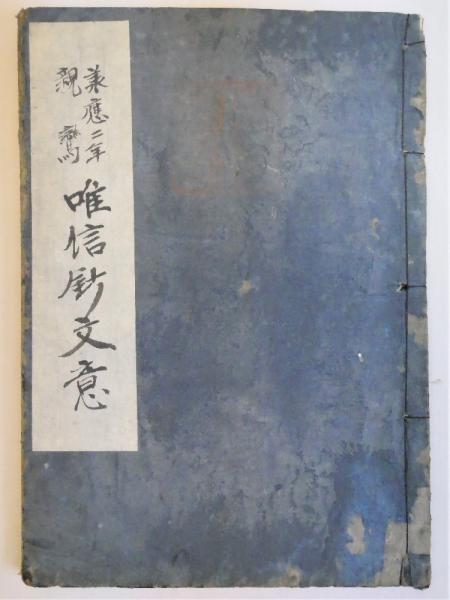 承應二年
親鸞
唯信鈔文意